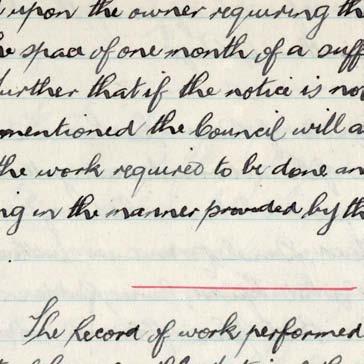 upon the owner requiring th
he space of one month of a suff
further that if the notice is not
mentioned the Council will a
the work required to be done an
ng in the manner provided by th
The Record of work performed